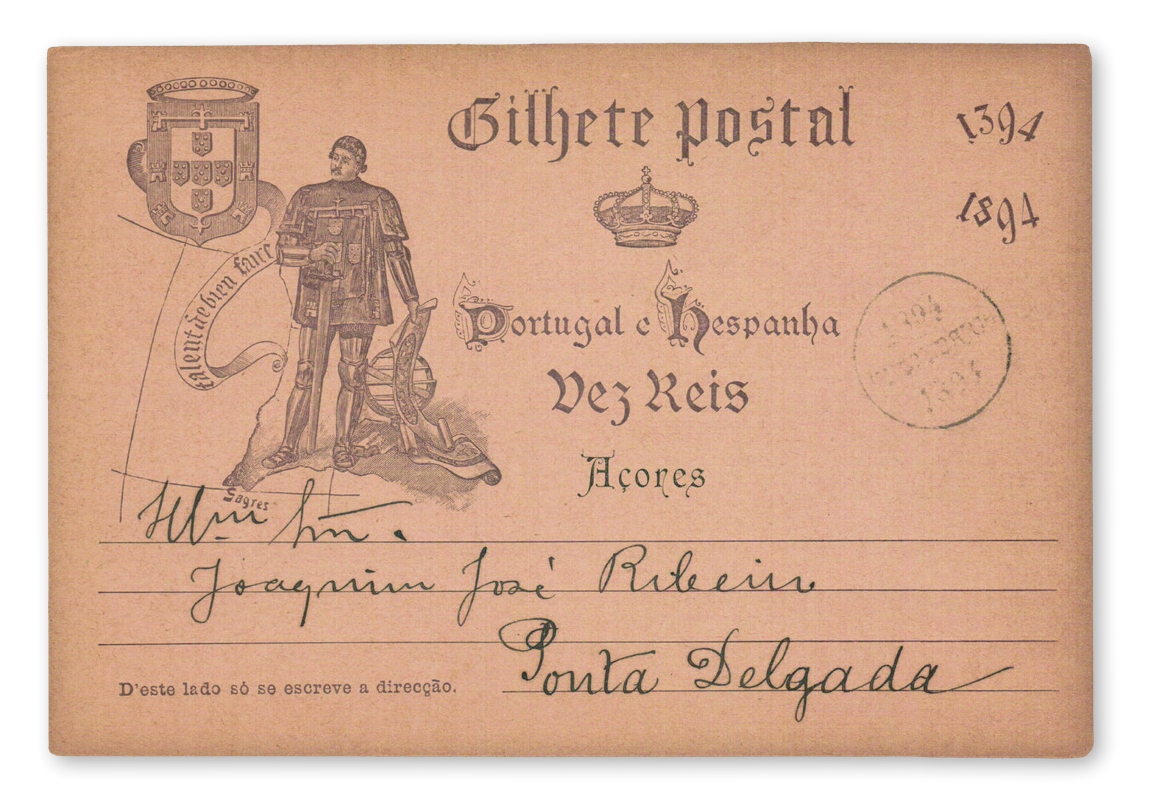 Bilhete Postal
1394
1894
talent de bien faire
Portugal e Hespanha
Dez Reis
Açores
1394
1894
Sagres
Illm Snr.
Joaquim José Ribeiro
Ponta Delgada
D'este lado só se escreve a direcção.